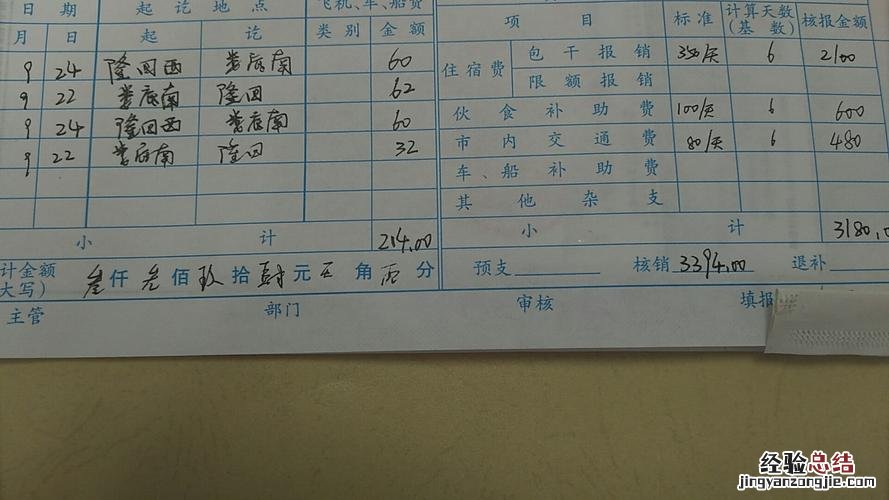 日 期 起 讫 地 点 飞机、车、船费
月 日 起 讫 类 别 金 额
9 24 隆回西 娄底南 60
9 22 娄底南 隆回 62
9 24 隆回西 娄底南 60
9 22 娄底南 隆回 32
小 计 214.00
项 目 标 准 计算天数(基 数) 核报金额
住宿费 包 干 报 销 350/天 6 2100
限 额 报 销
伙 食 补 助 费 100/天 6 600
市 内 交 通 费 80/天 6 480
车、船 补 助 费
其 他 杂 支
小 计 3180.0
计金额大写) 叁 仟 叁 佰 玖 拾 肆 元 角 分 预支 核销 3394.00 退补
主管 部门 审核 填报
经验总结
jingyanzongjie.com